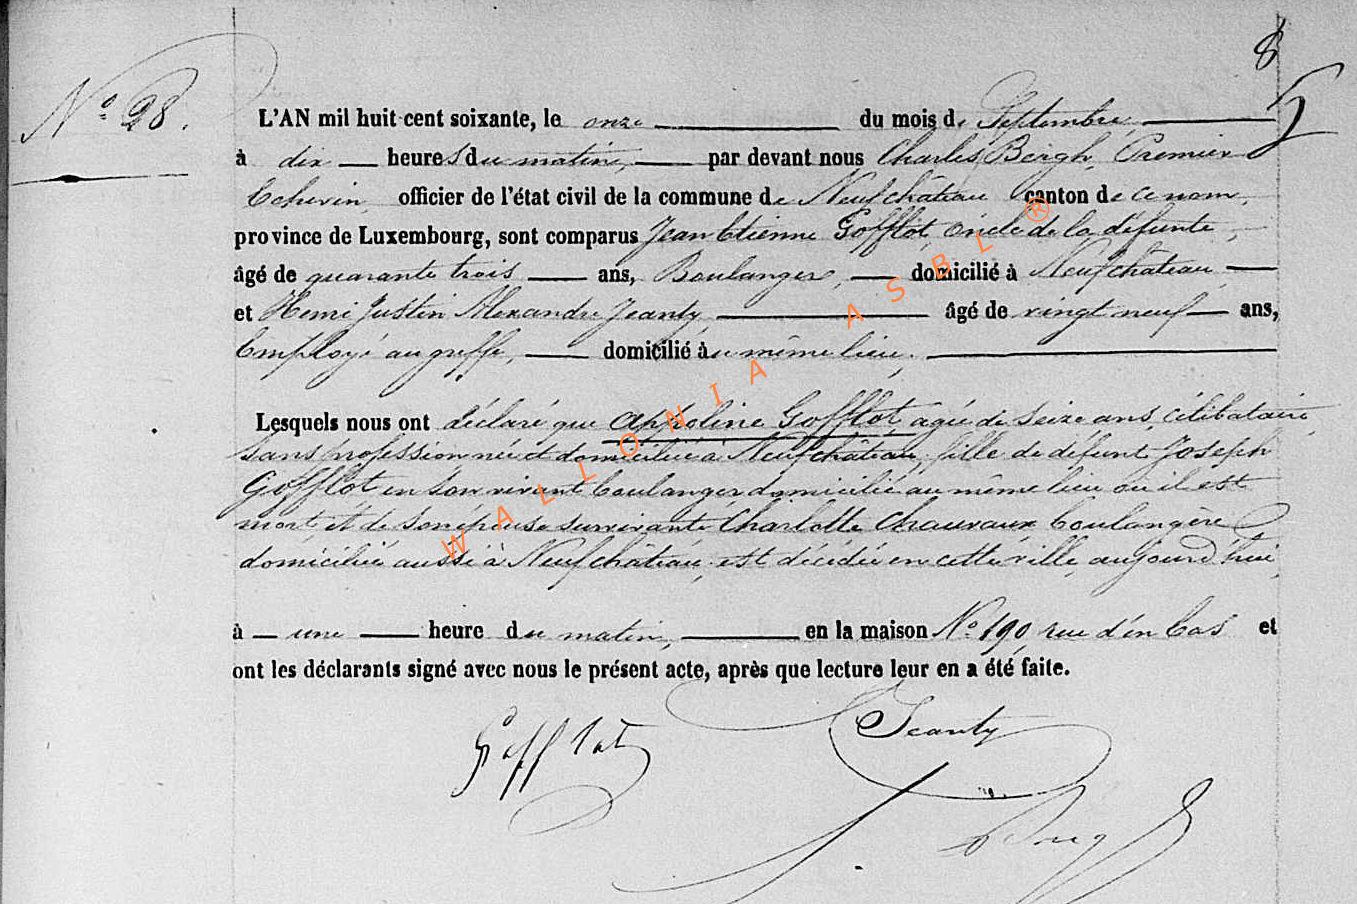 8
5
Nº 28.
L'AN mil huit cent soixante, le onze du mois de Septembre
à dix heures du matin, par devant nous Charles Bergh, Premier
Echevin, officier de l'état civil de la commune de Neufchâteau canton de ce nom,
province de Luxembourg, sont comparus Jean Etienne Gofflot, oncle de la défunte,
âgé de quarante trois ans, Boulanger, domicilié à Neufchâteau
et Henri Justin Alexandre Jeanty, âgé de vingt neuf ans,
Employé au greffe, domicilié au même lieu.
Lesquels nous ont déclaré que Appoline Gofflot, agée de seize ans, célibataire,
sans profession née et domiciliée à Neufchâteau, fille de défunt Joseph
Gofflot en son vivant boulanger domicilié au même lieu où il est
mort, et de son épouse survivante Charlotte Chauvaux boulangère
domiciliée aussi à Neufchâteau, est décédée en cette ville, aujourd'hui,
à une heure du matin, en la maison Nº 190, rue d'en bas et
ont les déclarants signé avec nous le présent acte, après que lecture leur en a été faite.
Gofflot
Jeanty
WALLONIA ASBL ®